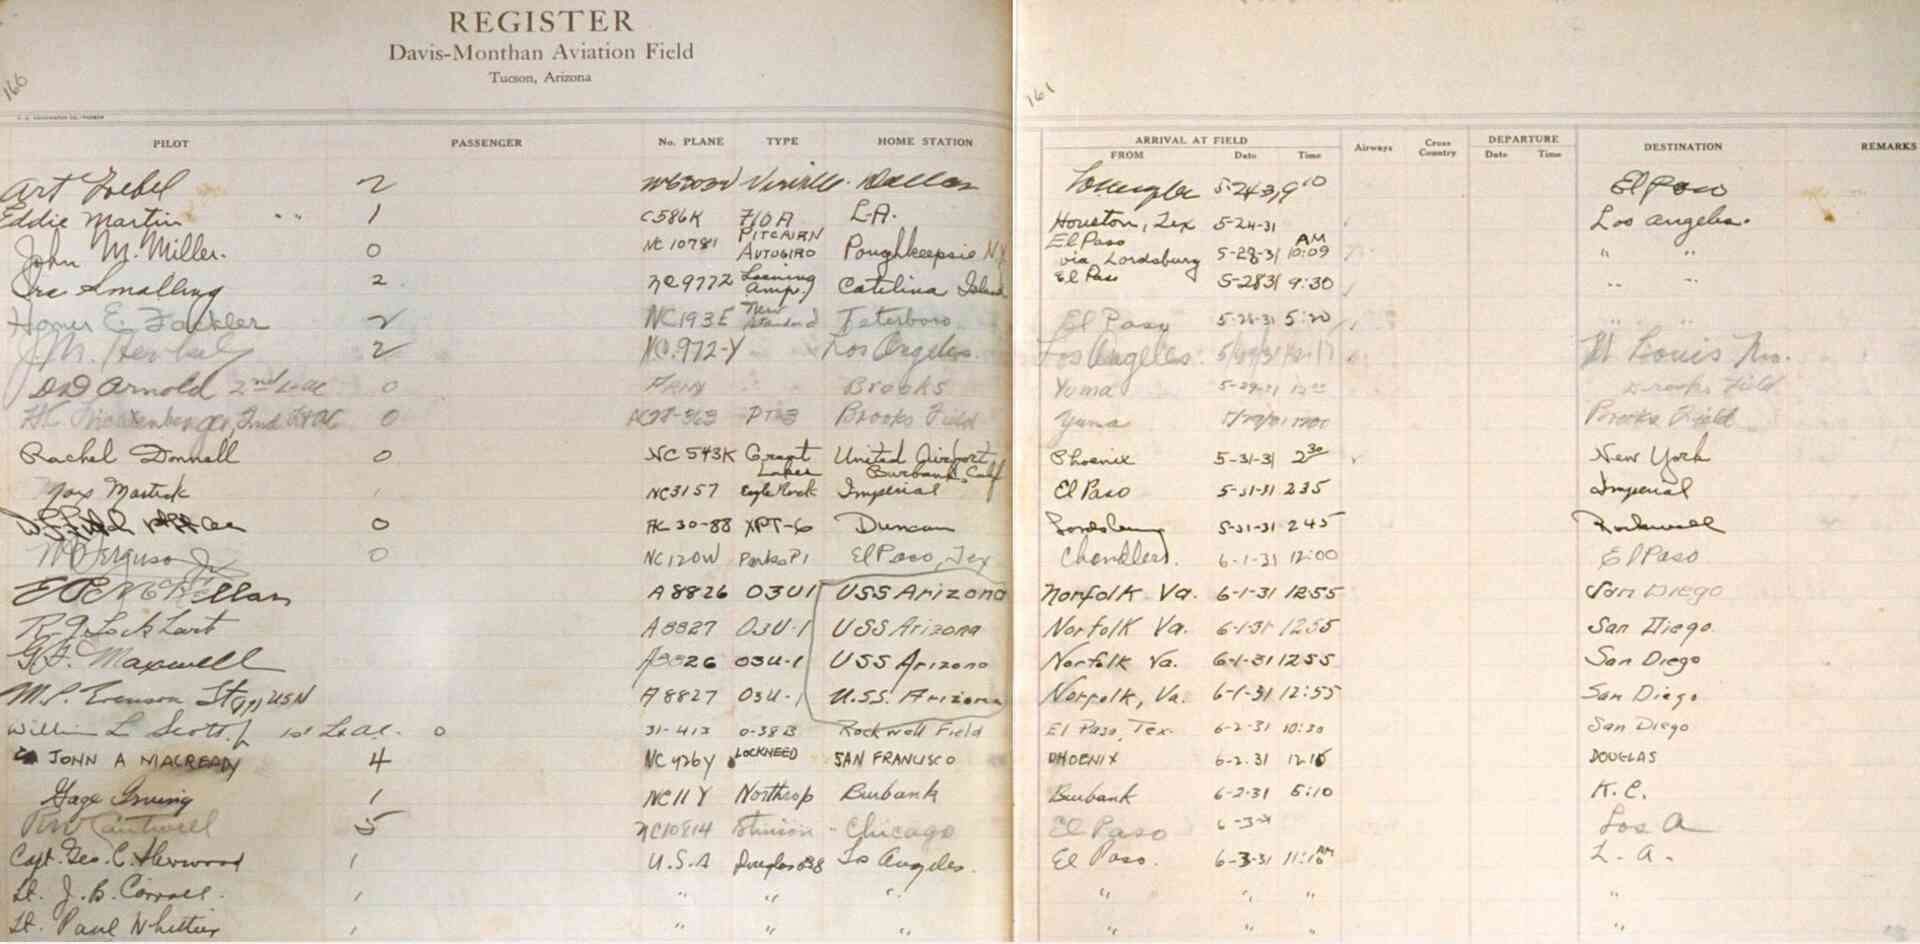 REGISTER
Davis-Monthan Aviation Field
Tucson, Arizona
160
161
PILOT PASSENGER No. PLANE TYPE HOME STATION ARRIVAL AT FIELD Airways Cross Country DEPARTURE DESTINATION REMARKS
FROM Date Time Date Time
Art Goebel 2 Dallas 5-24-31 9 10 El Paso
Eddie Martin " 1 C586K 710A L.A. Houston, Tex 5-24-31 Los Angeles.
John M. Miller. 0 NC 10781 PITCAIRN AUTOGIRO Poughkeepsie N.Y. El Paso via Lordsburg 5-28-31 AM 10:09 " "
Smalling 2 NC9772 Loening Amp. Catalina Island El Paso 5-2831 9:30 " "
Homer E. Fackler 2 NC193E New Standard Teterboro El Paso 5-28-31 5:20 " "
J.M. 2 NC.972-Y Los Angeles. Los Angeles. St Louis Mo.
Arnold 2nd Lt AC 0 Brooks Yuma 5-29-31 12 00 Brooks Field
2nd Lt AC 0 PT-3 Brooks Field Yuma Brooks Field
Rachel Donnell 0 NC 543K Great Lakes United Airport Burbank, Calif Phoenix 5-31-31 2 30 New York
Max Mastick 1 NC3157 Eaglerock Imperial El Paso 5-31-31 235 Imperial
0 AC 30-88 XPT-6 Duncan Lordsburg 5-31-31 245 Rockwell
Ferguson Jr 0 NC120W Parks P1 El Paso, Tex Chandler. 6-1-31 12:00 El Paso
McKellar A8826 O3U1 USS Arizona Norfolk Va. 6-1-31 12:55 San Diego
R.J. Lockhart A8827 O3U-1 USS Arizona Norfolk Va. 6-1-31 1255 San Diego.
G.F. Maxwell A8826 O3U-1 USS Arizona Norfolk Va. 6-1-31 1255 San Diego
M.P. Evenson USN A8827 O3U-1 U.S.S. Arizona Norfolk, Va. 6-1-31 12:55 San Diego
William L Scott Jr 1st Lt. AC. 0 31-413 O-38B Rockwell Field El Paso, Tex. 6-2-31 10:30 San Diego
JOHN A MACREADY 4 NC426Y LOCKHEED SAN FRANCISCO PHOENIX 6-2.31 12.15 DOUGLAS
Gage Irving 1 NC11Y Northrop Burbank Burbank 6-2-31 5:10 K.C.
Cantwell 5 NC10814 Stinson - Chicago El Paso 6-3-31 Los A
Capt. Geo. C. Sherwood 1 U.S.A Douglas O38 Los Angeles. El Paso. 6-3-31 11:10 AM L.A.
Lt. J. B. 1 " " " " " " "
Lt. Paul Whittier 1 " " " " " " "